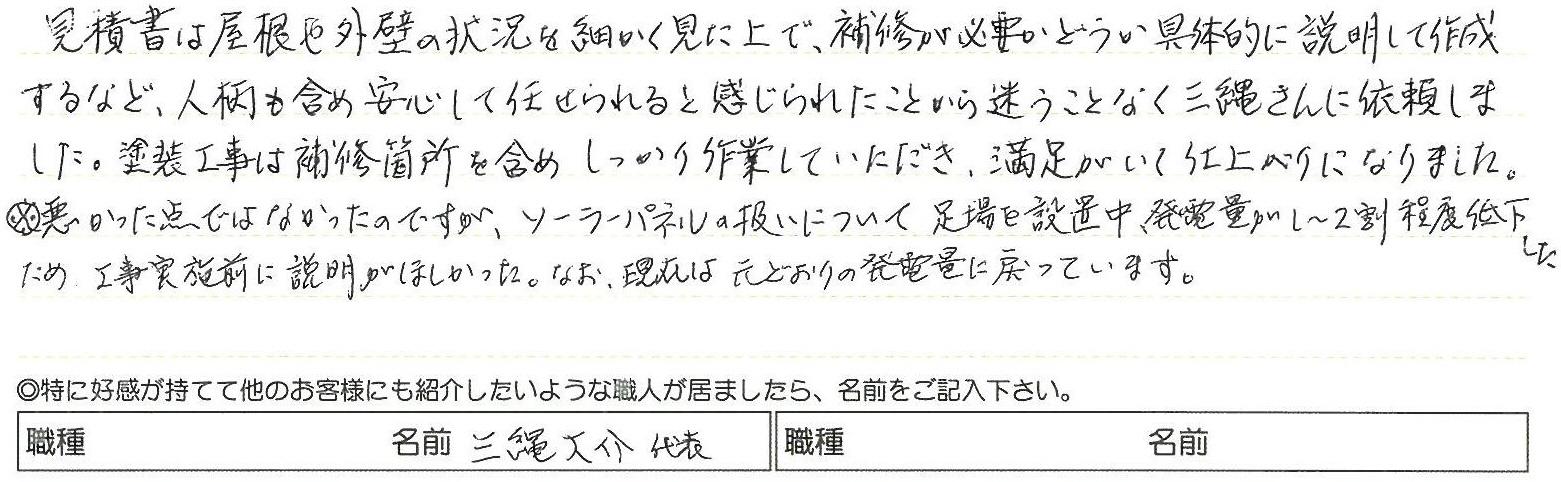 見積書は屋根や外壁の状況を細かく見た上で、補修が必要かどうか具体的に説明して作成
するなど、人柄も含め安心して任せられると感じられたことから迷うことなく三縄さんに依頼しま
した。塗装工事は補修箇所を含めしっかり作業していただき、満足がいく仕上がりになりました。
※悪かった点ではなかったのですが、ソーラーパネルの扱いについて足場を設置中、発電量が1～2割程度低下した
ため、工事実施前に説明がほしかった。なお、現在は元どおりの発電量に戻っています。
◎特に好感が持てて他のお客様にも紹介したいような職人が居ましたら、名前をご記入下さい。
職種 名前 三縄大介 代表 職種 名前